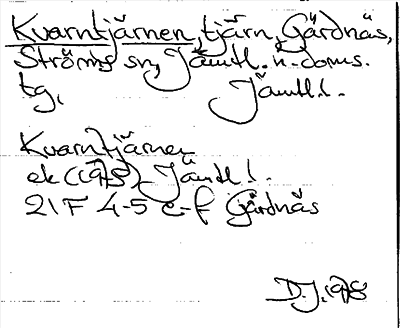 Kvarntjärnen, tjärn, Gärdnäs,
Ströms sn, Jämtl. n. doms.
tg, Jämtl. l.
Kvarntjärnen
ek (1975) Jämtl l.
21F 4-5 e-f Gärdnäs
D.J. 1978